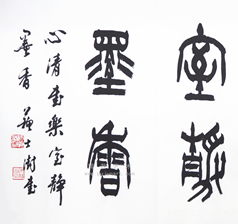 室靜
墨香
心清畫樂室靜
墨香 蘇士澍書